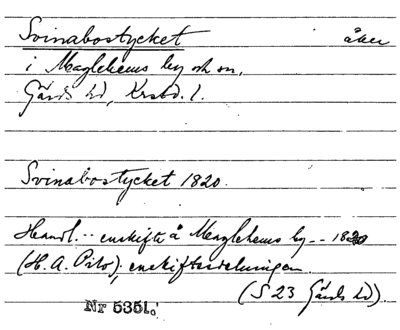 Svinabostycket åker
i Maglehems by och sn,
Gärds hd, Krstd. l.
Svinabostycket 1820.
Handl. -- enskifte å Maglehems by -- 1820
(H. A. Pilo), enskiftesdelningen
(S 23 Gärds hd).
Nr 5351.